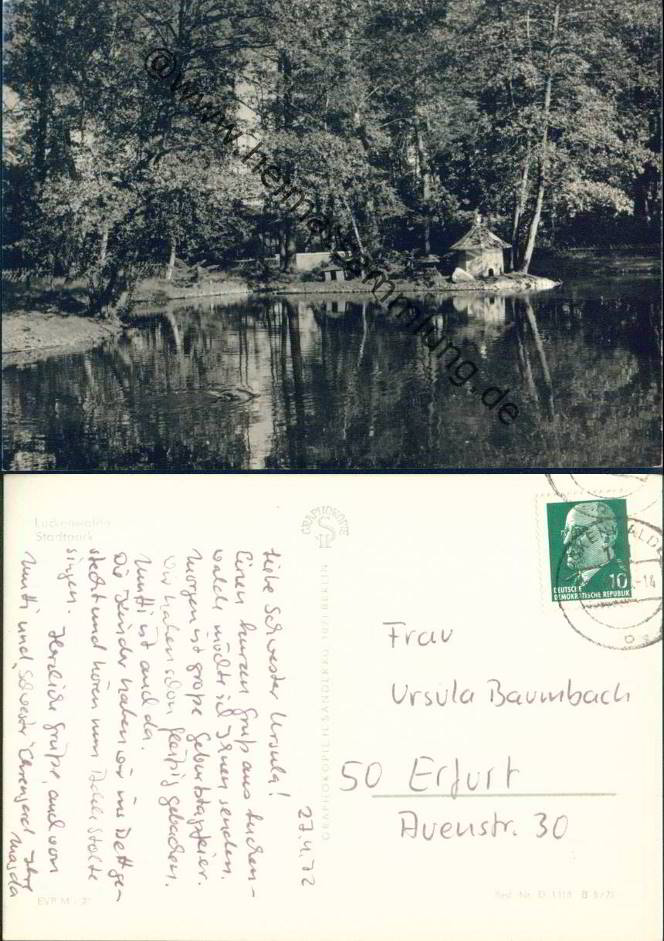 ©www.heimatsammlung.de
Luckenwalde
Stadtpark
27.4.72
Liebe Schwester Ursula!
Einen kurzen Gruß aus Lucken-
walde möchte ich Ihnen senden.
Morgen ist große Geburtstagsfeier.
Wir haben schon fleißig gebacken.
Mutti ist auch da.
Die Kinder haben wir ins Bettgen
steckt und hören nun Stolte
singen.
Herzliche Grüße, auch von
Mutti und Schwester Ihre
EVP M
GRAPHOKOPIE
GRAPHOKOPIE H. SANDER KG 1071 BERLIN
DEUTSCHE
DEMOKRATISCHE REPUBLIK
10
-14
Frau
Ursula Baumbach
50 Erfurt
Auenstr. 30
Best.-Nr. D 1318 B 3/71